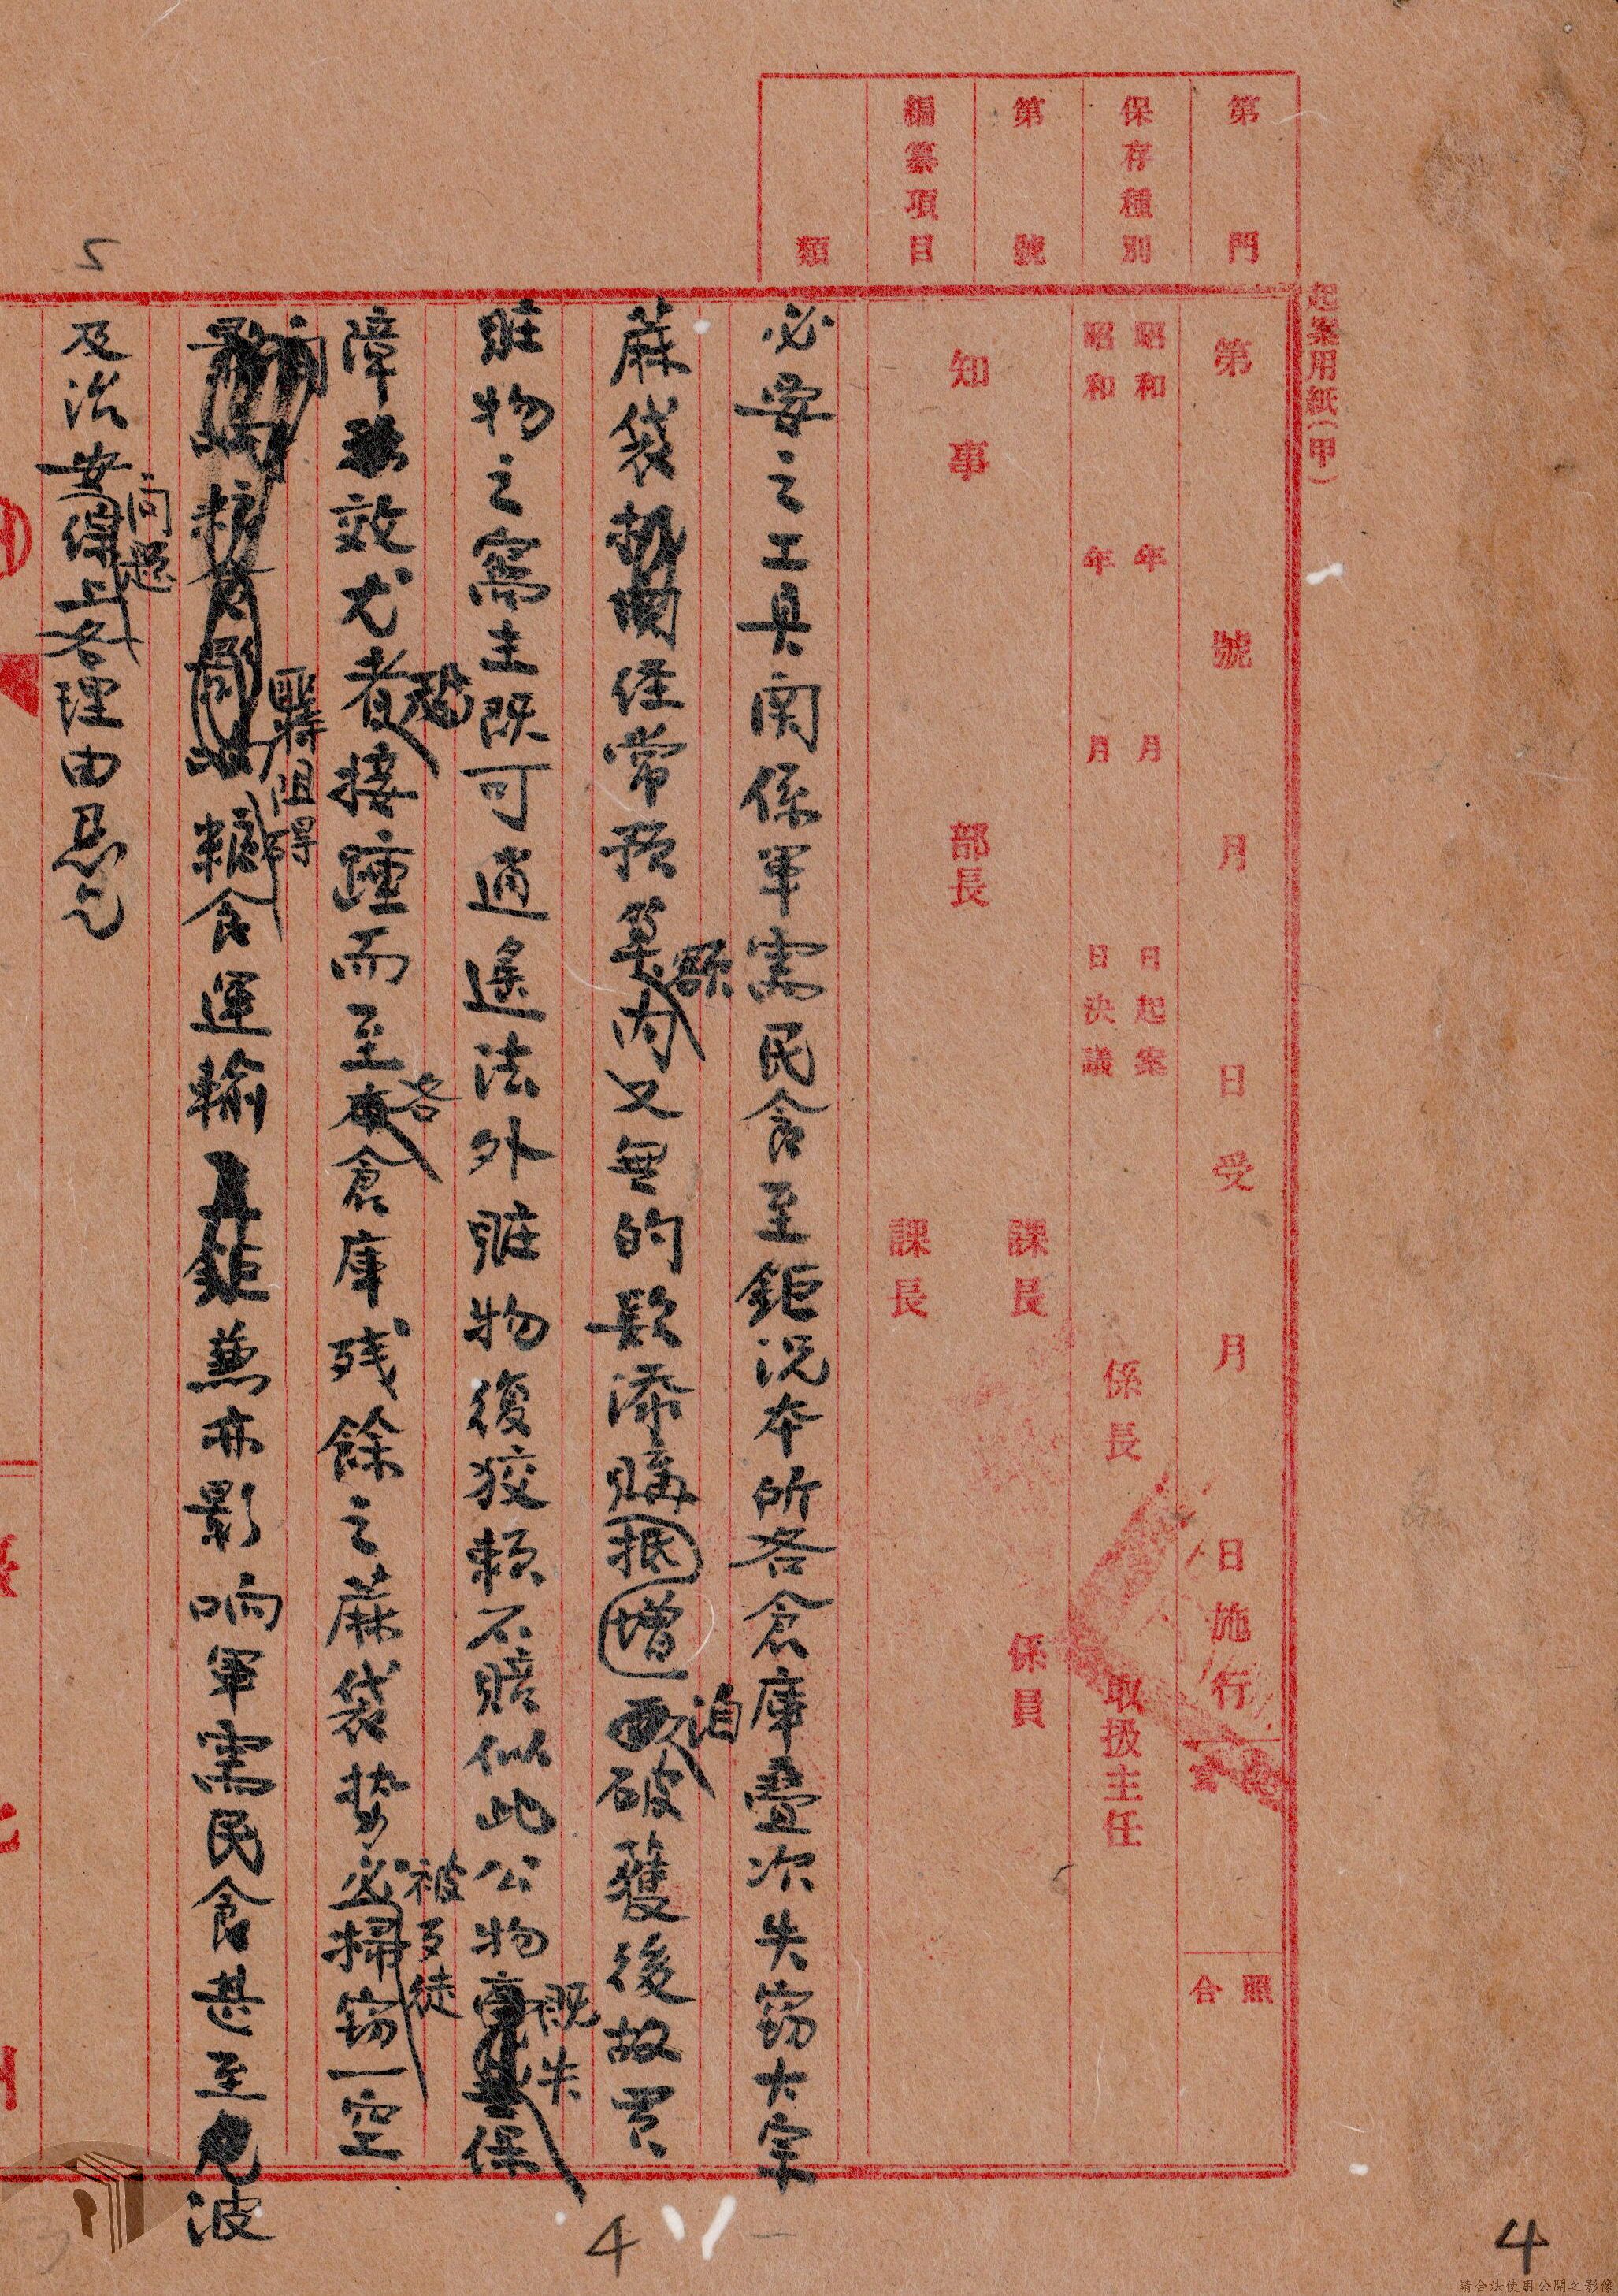 起案用紙(甲)
第 門
保存種別
第 號
編纂項目
類
第 號 月 日受 月 日施行
照合
昭和 年 月 日起案
昭和 年 月 日決議
係長
取扱主任
知事
部長
課長
課長
係員
必要之工具関係軍需民食至鉅況本所各倉庫疊次失窃大宗
蔴袋経常預算額内又無的欵添購抵增洎破獲後故買
賍物之窩主既可逍遙法外賍物復狡賴不賠似此公物既失保
障效尤者接踵而至各倉庫残餘之蔴袋势必被歹徒掃窃一空
阻碍糧食運輸鉅兼亦影响軍需民食甚至波
及治安問題上各理由忍乞
5
4
4
3
請合法使用公開之影像